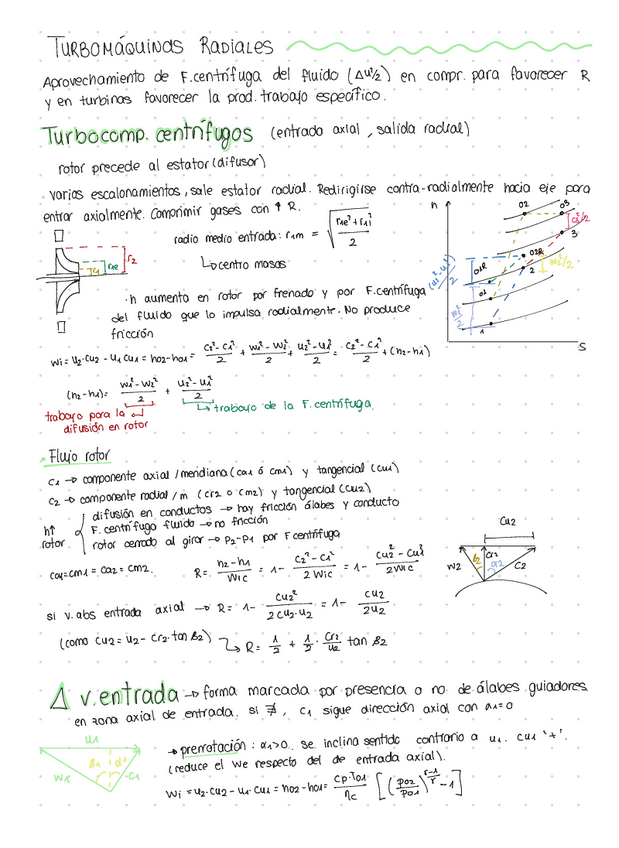 TURBOMÁQUINAS RADIALES
Aprovechamiento de F.centrífuga del fluido (Δu²/2) en compr. para favorecer R
y en turbinas favorecer la prod. trabajo específico.
Turbocomp. centrífugos (entrada axial, salida radial)
rotor precede al estator (difusor)
· varios escalonamientos, sale estator radial. Redirigirse contra-radialmente hacia eje para
entrar axialmente. Comprimir gases con ↑ R.
radio medio entrada: r1m = √((r1e² + r1i²)/2)
↳ centro masas
r1 r1e r2
· h aumenta en rotor por frenado y por F.centrífuga
del fluido que lo impulsa radialmente. No produce
fricción
h 02 03 C3²/2 3 02R 01R 2 W2²/2 (u2²-u1²)/2 01 W1²/2 1 S
Wi = U2·Cu2 - U1 Cu1 = h02-h01 = (C2²-C1²)/2 + (W1²-W2²)/2 + (U2²-U1²)/2 = (C2²-C1²)/2 + (h2-h1)
(h2-h1) = (W1²-W2²)/2 + (U2²-U1²)/2
↳ trabajo de la F.centrífuga.
trabajo para la
difusión en rotor
· Flujo rotor
C1 → componente axial/meridiana (ca1 ó cm1) y tangencial (cu1)
C2 → componente radial/m (cr2 o cm2) y tangencial (cu2)
h↑ rotor
difusión en conductos → hay fricción álabes y conducto
F. centrífugo fluido → no fricción
rotor cerrado al girar → P2-P1 por F centrífuga
Cu2 W2 β2 Cr2 α2 C2
ca1=cm1 = ca2 = cm2. R = (h2-h1)/Wic = 1 - (C2²-C1²)/(2 Wic) = 1 - (Cu2²-Cu1²)/(2Wic)
si v.abs entrada axial → R = 1 - Cu2²/(2 Cu2·U2) = 1 - Cu2/(2U2)
(como cu2 = u2 - cr2.tan β2) ↳ R = 1/2 + 1/2 · Cr2/U2 tan β2
Δ v.entrada → forma marcada por presencia o no de álabes guiadores
en zona axial de entrada. si ∄, c1 sigue dirección axial con α1=0
U1 W1 β1 α1 C1
→ prerrotación: α1>0. se inclina sentido contrario a u1. cu1 '+'.
(reduce el We respecto del de entrada axial).
Wi = U2·Cu2 - U1·Cu1 = h02-h01 = (Cp·T01)/ηc [(P02/P01)^((γ-1)/γ) - 1]